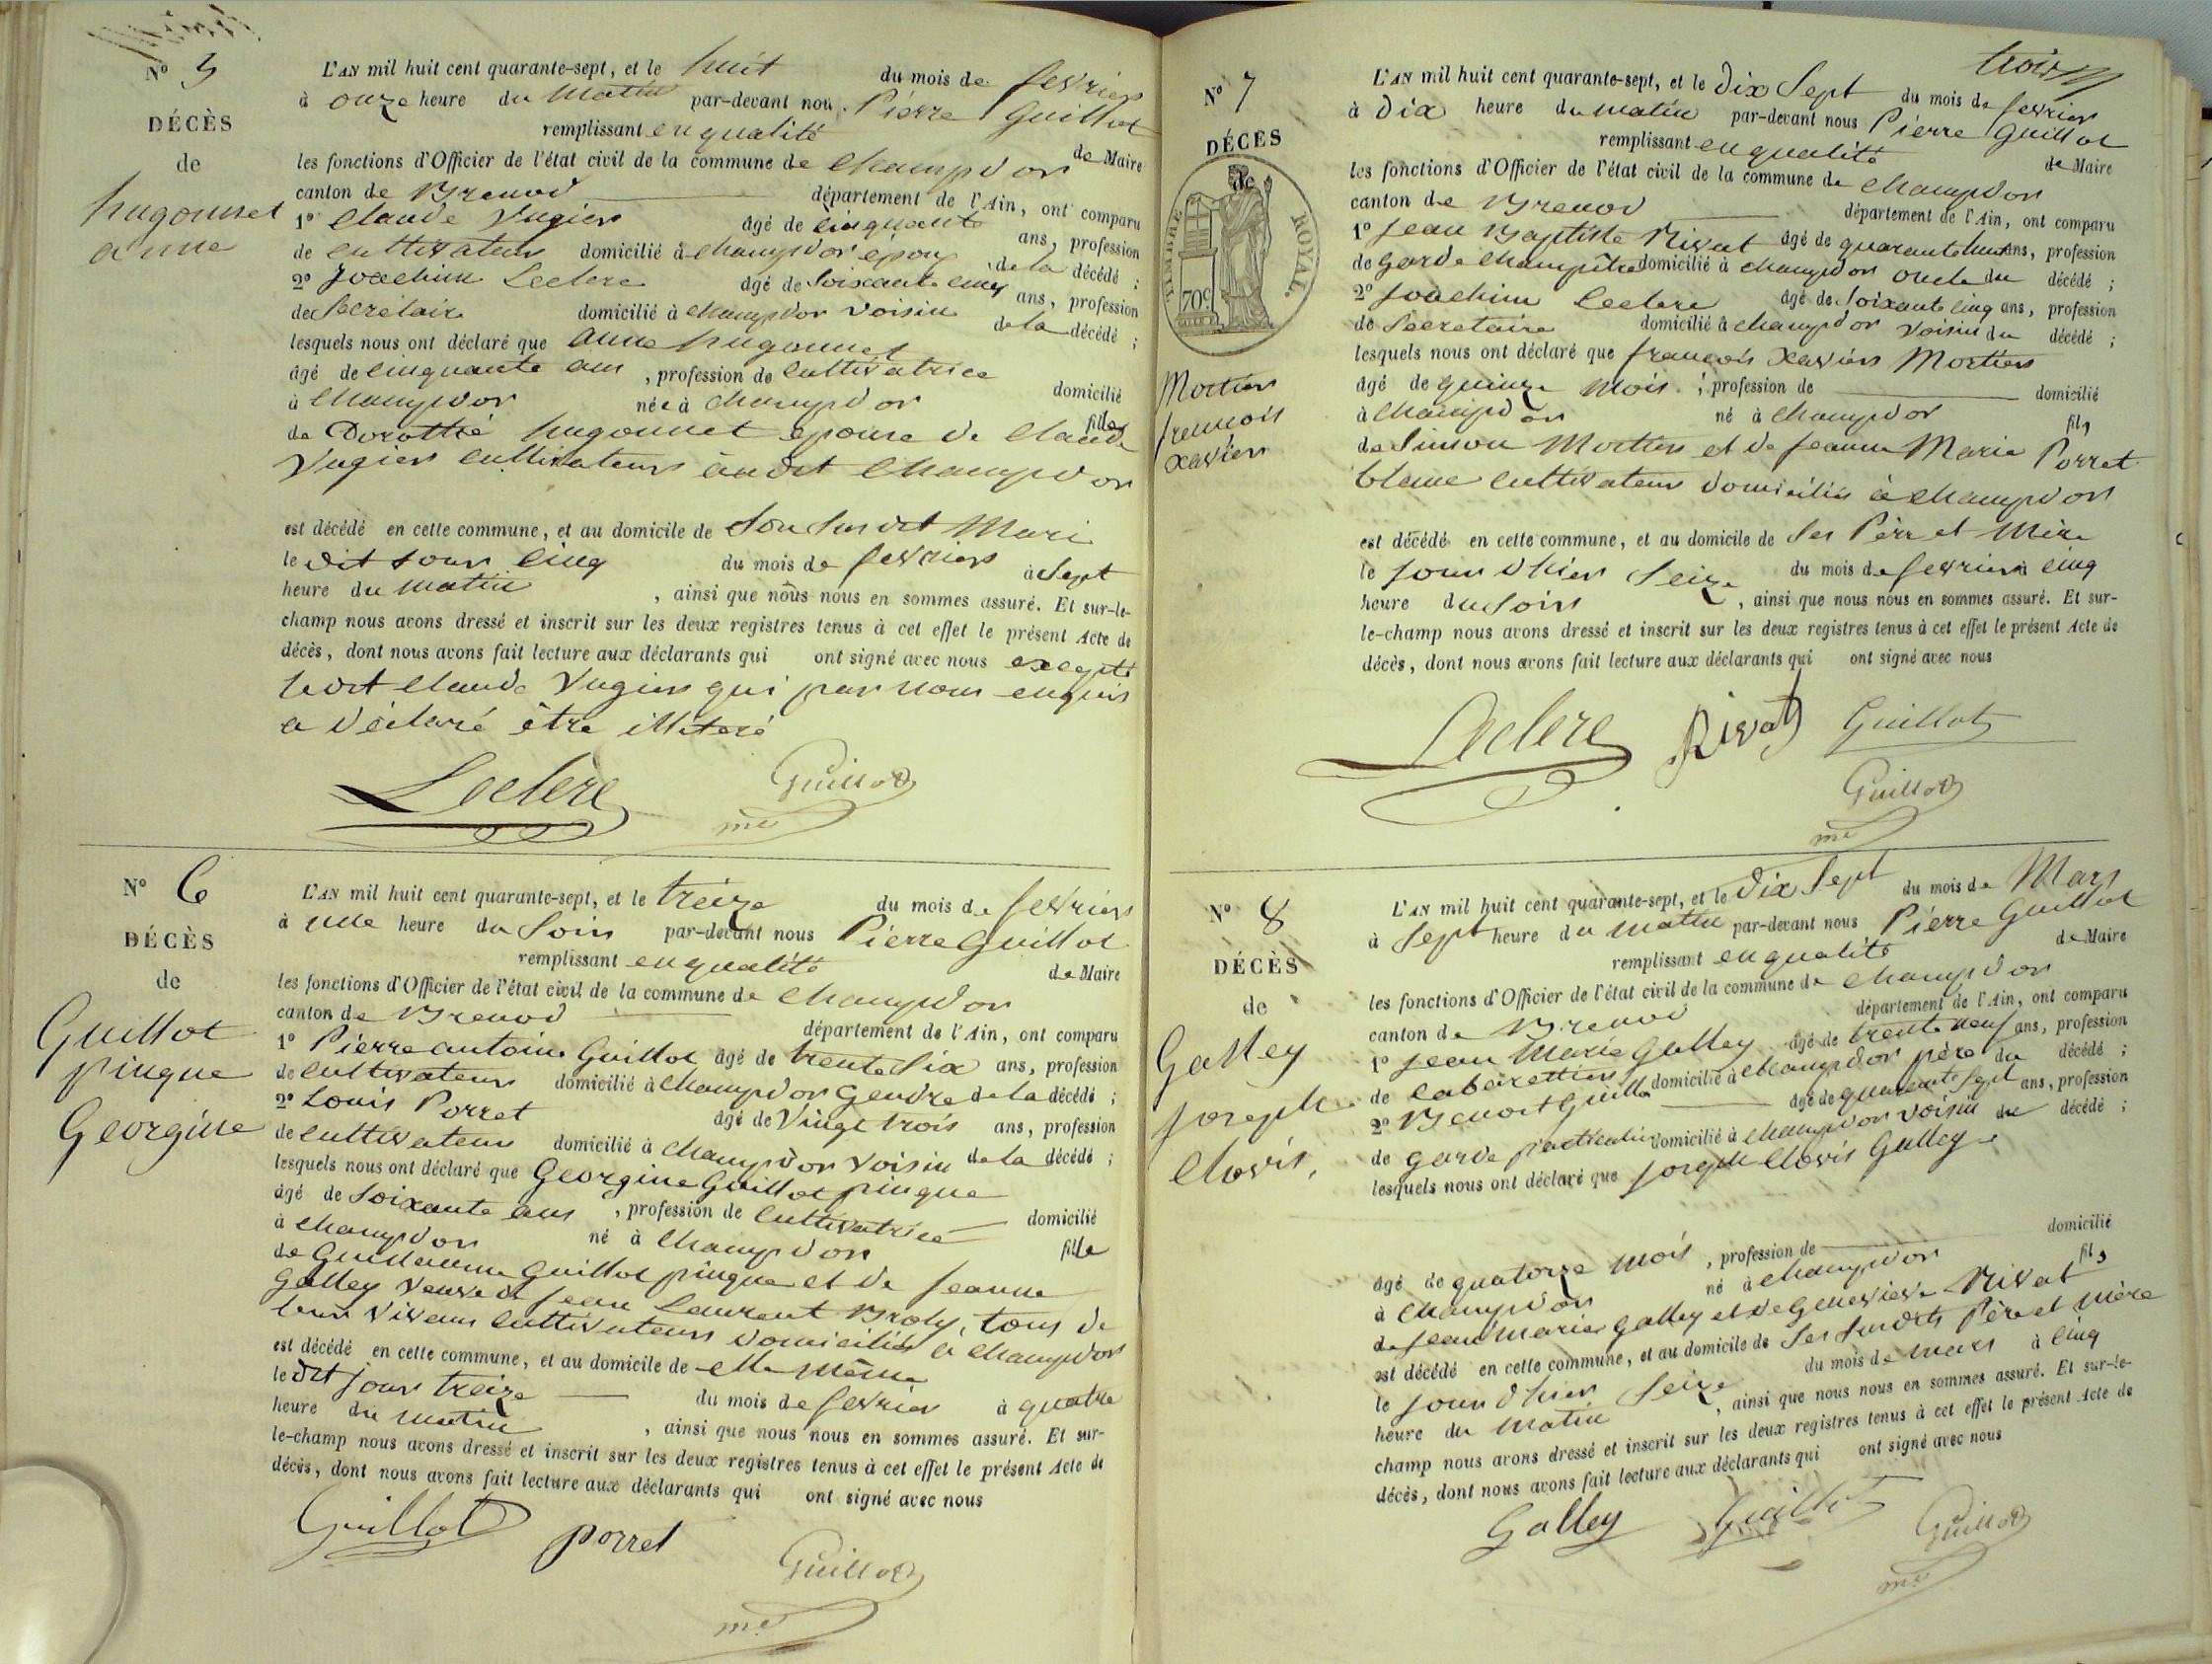 N° 5
DÉCÈS
de
hugonnet
anne
L'AN mil huit cent quarante-sept, et le huit du mois de fevrier
à onze heure du matin par-devant nous Pierre Guillot
remplissant en qualité de Maire
les fonctions d'Officier de l'état civil de la commune de Champdor
canton de Brenod département de l'Ain, ont comparu
1° Claude Vugier âgé de cinquante ans, profession
de cultivateur domicilié à champdor époux de la décédé ;
2° Joachim Leclere âgé de Soixante cinq ans, profession
de Secretaire domicilié à champdor voisin de la décédé ;
lesquels nous ont déclaré que anne hugonnet
âgé de cinquante ans , profession de cultivatrice domicilié
à Champdor née à champdor fille
de Dorothé hugonnet epouse de Claude
Vugier cultivateurs audit Champdor
est décédé en cette commune, et au domicile de Son Susdit Mari
le dit jour cinq du mois de fevrier à Sept
heure du matin , ainsi que nous nous en sommes assuré. Et sur-le-
champ nous avons dressé et inscrit sur les deux registres tenus à cet effet le présent Acte de
décès, dont nous avons fait lecture aux déclarants qui ont signé avec nous excepté
ledit Claude Vugier qui par nous enquis
a déclaré être illiteré
Leclère Guillot
me
N° 6
DÉCÈS
de
Guillot
pingue
Georgine
L'AN mil huit cent quarante-sept, et le treize du mois de fevrier
à une heure du Soir par-devant nous Pierre Guillot
remplissant en qualité de Maire
les fonctions d'Officier de l'état civil de la commune de Champdor
canton de Brenod département de l'Ain, ont comparu
1° Pierre antoine Guillot âgé de trente Six ans, profession
de cultivateur domicilié à Champdor Gendre de la décédé ;
2° Louis Porret âgé de Vingt trois ans, profession
de cultivateur domicilié à Champdor voisin de la décédé ;
lesquels nous ont déclaré que Georgine Guillot pingue
âgé de Soixante ans , profession de cultivatrice domicilié
à champdor né à Champdor fille
de Guillaume Guillot pingue et de Jeanne
Galley veuve de Jean Laurent Broly, tous de
leur vivant cultivateurs domiciliés à champdor
est décédé en cette commune, et au domicile de elle même
le dit jour treize du mois de fevrier à quatre
heure du matin , ainsi que nous nous en sommes assuré. Et sur-
le-champ nous avons dressé et inscrit sur les deux registres tenus à cet effet le présent Acte de
décès, dont nous avons fait lecture aux déclarants qui ont signé avec nous
Guillot porret Guillot
me
trois
N° 7
DÉCÈS
de
TIMBRE ROYAL.
70c
Mortier
francois
xavier
L'AN mil huit cent quarante-sept, et le Dix Sept du mois de fevrier
à Dix heure du matin par-devant nous Pierre Guillot
remplissant en qualité de Maire
les fonctions d'Officier de l'état civil de la commune de Champdor
canton de Brenod département de l'Ain, ont comparu
1° Jean Baptiste Rivat âgé de quarante huit ans, profession
de Garde champêtre domicilié à champdor oncle du décédé ;
2° Joachim Leclere âgé de Soixante cinq ans, profession
de Secretaire domicilié à champdor voisin du décédé ;
lesquels nous ont déclaré que francois xavier Mortier
âgé de quinze mois , profession de domicilié
à Champdor né à Champdor fils
de Simon Mortier et de Jeanne Marie Porret
blanc cultivateurs domiciliés à champdor
est décédé en cette commune, et au domicile de Ses Père et Mère
le jour d'hier Seize du mois de fevrier à cinq
heure du Soir , ainsi que nous nous en sommes assuré. Et sur-
le-champ nous avons dressé et inscrit sur les deux registres tenus à cet effet le présent Acte de
décès, dont nous avons fait lecture aux déclarants qui ont signé avec nous
Leclere Rivat Guillot
Guillot
me
N° 8
DÉCÈS
de
Galley
joseph
Clovis,
L'AN mil huit cent quarante-sept, et le Dix Sept du mois de Mars
à Sept heure du matin par-devant nous Pierre Guillot
remplissant en qualité de Maire
les fonctions d'Officier de l'état civil de la commune de Champdor
canton de Brenod département de l'Ain, ont comparu
1° Jean Marie Galley âgé de trente neuf ans, profession
de cabaretier domicilié à Champdor père du décédé ;
2° Benoit Guillot âgé de quarante Sept ans, profession
de Garde particulier domicilié à Champdor voisin du décédé ;
lesquels nous ont déclaré que joseph Clovis Galley
âgé de quatorze mois , profession de domicilié
à Champdor né à Champdor fils
de Jean Marie Galley et de Genevieve Rivat
est décédé en cette commune, et au domicile de Ses Susdits Père et mère
le jour d'hier Seize du mois de mars à cinq
heure du matin , ainsi que nous nous en sommes assuré. Et sur-le-
champ nous avons dressé et inscrit sur les deux registres tenus à cet effet le présent Acte de
décès, dont nous avons fait lecture aux déclarants qui ont signé avec nous
Galley Guillot Guillot
me